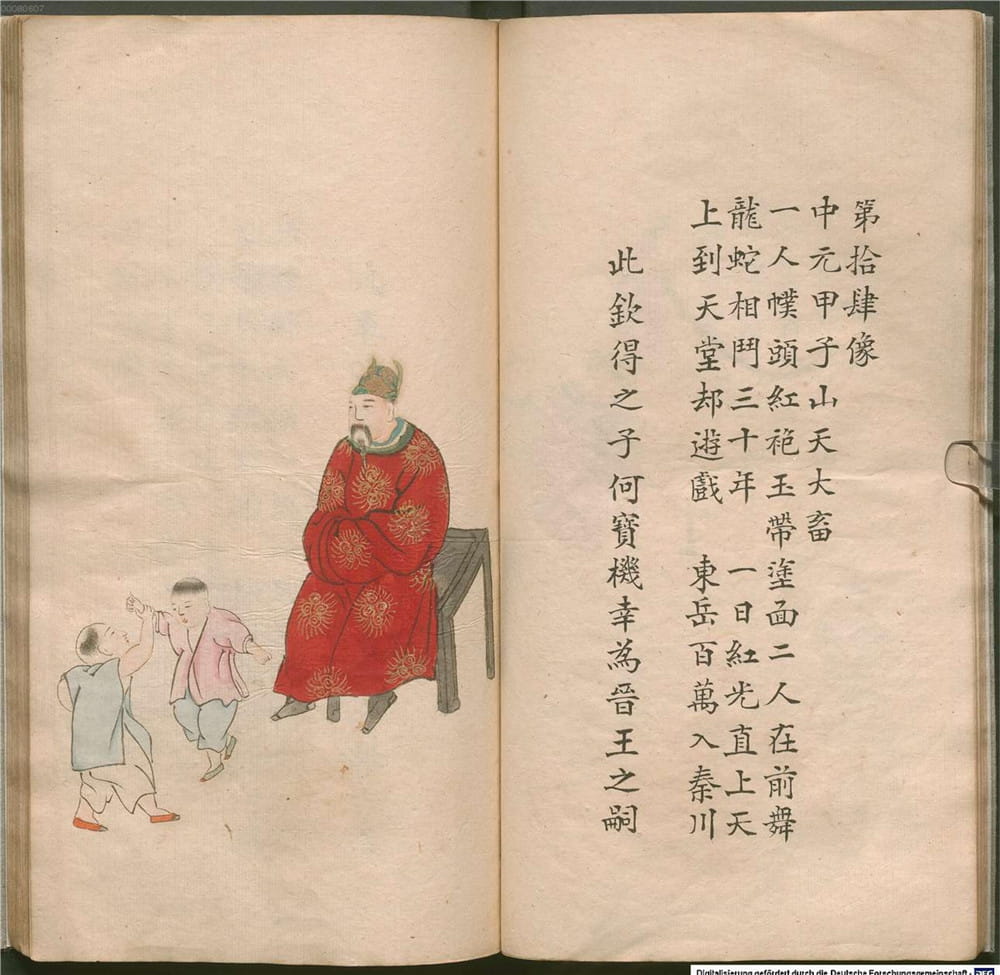 第拾肆像
中元甲子山天大畜
一人幞頭紅袍玉帶塗面二人在前舞
龍蛇相鬥三十年 一日紅光直上天
上到天堂却遊戲 東岳百萬入秦川
此欽得之子何寶機幸為晉王之嗣
00080607
Digitalisierung gefördert durch die Deutsche Forschungsgemeinschaft - DFG